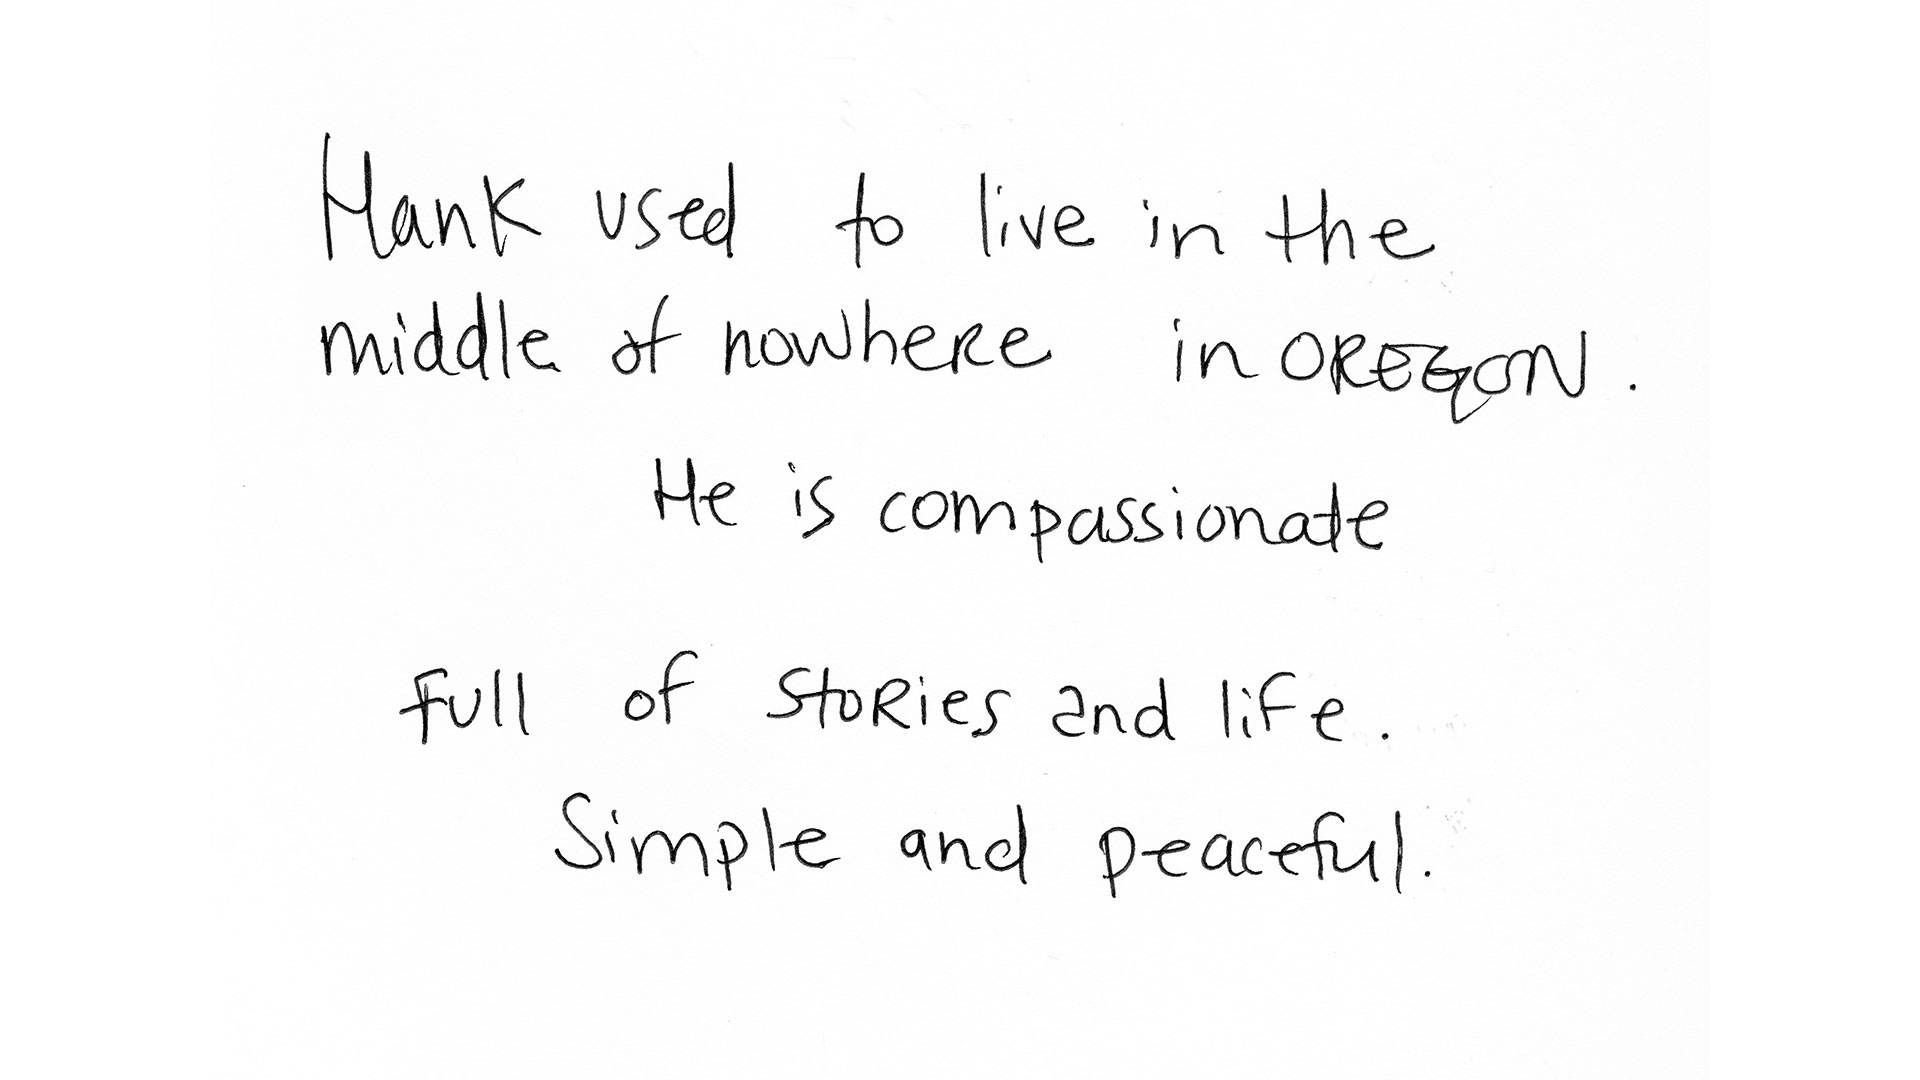 Hank used to live in the
middle of nowhere in OREGON.
He is compassionate
Full of stories and life.
Simple and peaceful.